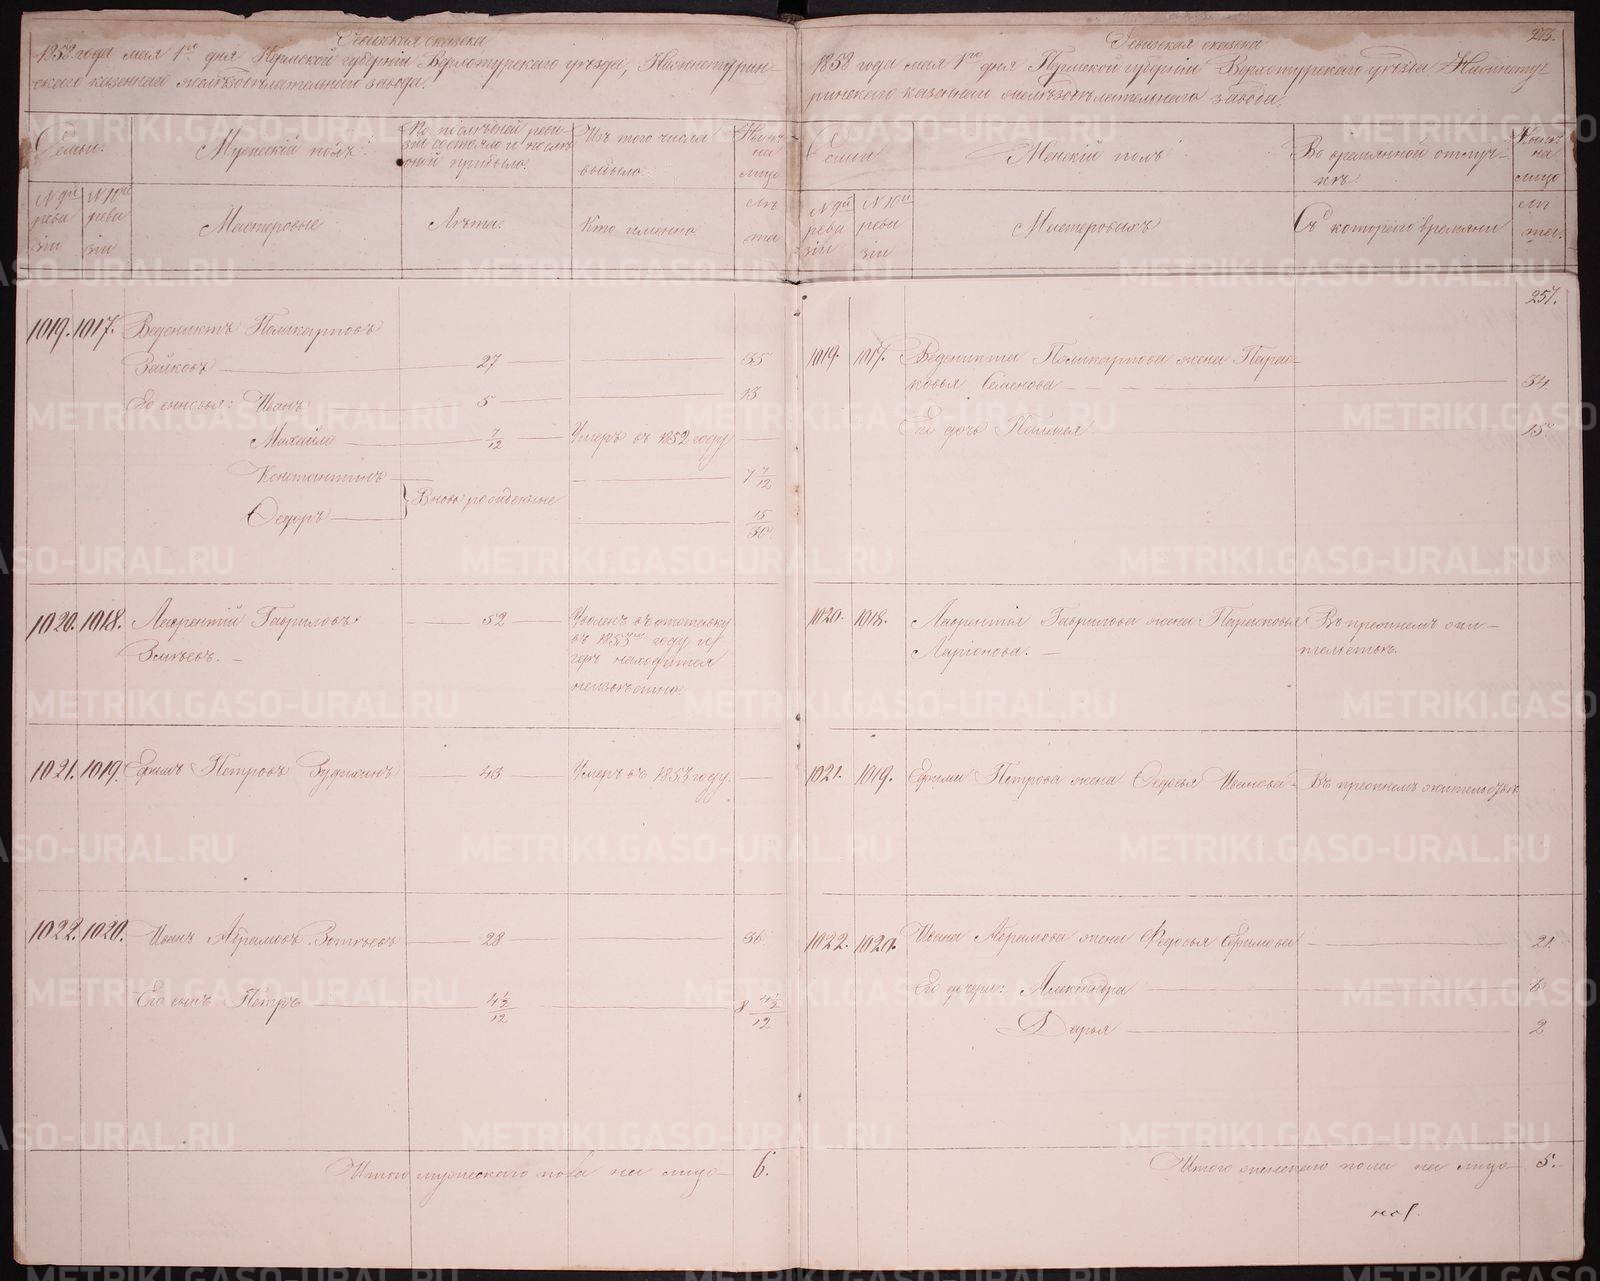 Ревизская сказка
1858 года мая 1го дня Пермской губернiи Верхотурскаго уѣзда, Нижнетурин-
скаго казеннаго желѣзодѣлательнаго завода.
Семьи.
Мужескiй полъ
По послѣдней реви-
зiи состояло и послѣ
оной прибыло.
Изъ того числа
выбыло.
Нынѣ
на
лицо
№ 9й
реви
зiи
№ 10й
реви
зiи
Мастеровые
Лѣта.
Кто именно
лѣ
та
1019. 1017. Веденихтъ Поликарповъ
Зайковъ 27 35
Его сыновья: Иванъ 5 13
Михайло 7/12 Умеръ въ 1852 году
Константинъ 7 7/12
Вновь рожденные
Ѳедоръ 15/30
1020. 1018. Лаврентiй Гавриловъ 52 Уволенъ въ отставку
въ 1853мъ году и
гдѣ находится
неизвѣстно
1021. 1019. Ефимъ Петровъ 43 Умеръ въ 1853 году.
1022. 1020. Иванъ Абрамовъ 28 36
Его сынъ Петръ 4½/12 8 4½/12
Итого мужескаго пола на лицо 6.
273.
Ревизская сказка
1858 года мая 1го дня Пермской губернiи Верхотурскаго уѣзда Нижнету-
ринскаго казеннаго желѣзодѣлательнаго завода.
Семьи
Женскiй полъ
Во временной отлуч-
кѣ
Нынѣ
на
лицо
№ 9й
реви
зiи
№ 10й
реви
зiи
Мастеровыхъ
Съ котораго времяни
лѣ
та.
257.
1019. 1017. Веденихта Поликарпова жена Парас-
ковья Семенова 34
Его дочь Пелагея 15
1020. 1018. Лаврентiя Гаврилова жена Парасковья Въ прежнемъ жи-
Ларiонова. тельствѣ.
1021. 1019. Ефима Петрова жена Ѳедосья Иванова Въ прежнемъ жительствѣ
1022. 1020. Ивана Абрамова жена Федосья Ефимова 21
Его дочери: Александра 6
Дарья 2
Итого женскаго пола на лицо 5.
METRIKI.GASO-URAL.RU